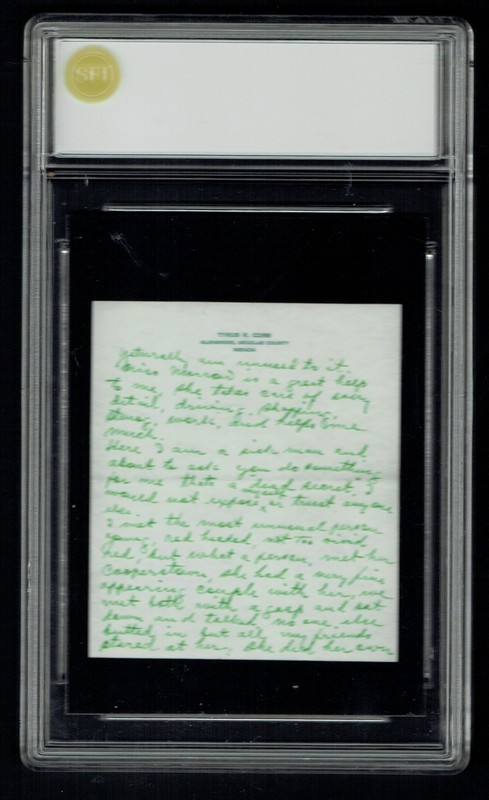 SFI
TYRUS R. COBB
GLENBROOK, DOUGLAS COUNTY
NEVADA
Naturally am unused to it
Miss Morrow is a great help
to me, she takes care of every
detail, driving, shopping,
work, and helps me
much.
Here I am a sick man and
about to ask you do something
for me thats a dead secret, I
would not expose myself or trust anyone
else.
I met the most unusual person
young, red headed, not too vivid
red, but what a person, met her
Cooperstown, she had a very fine
appearing couple with her, we
met both with a gasp and sat
down and talked no one else
butted in but all my friends
stared at her, she did her own